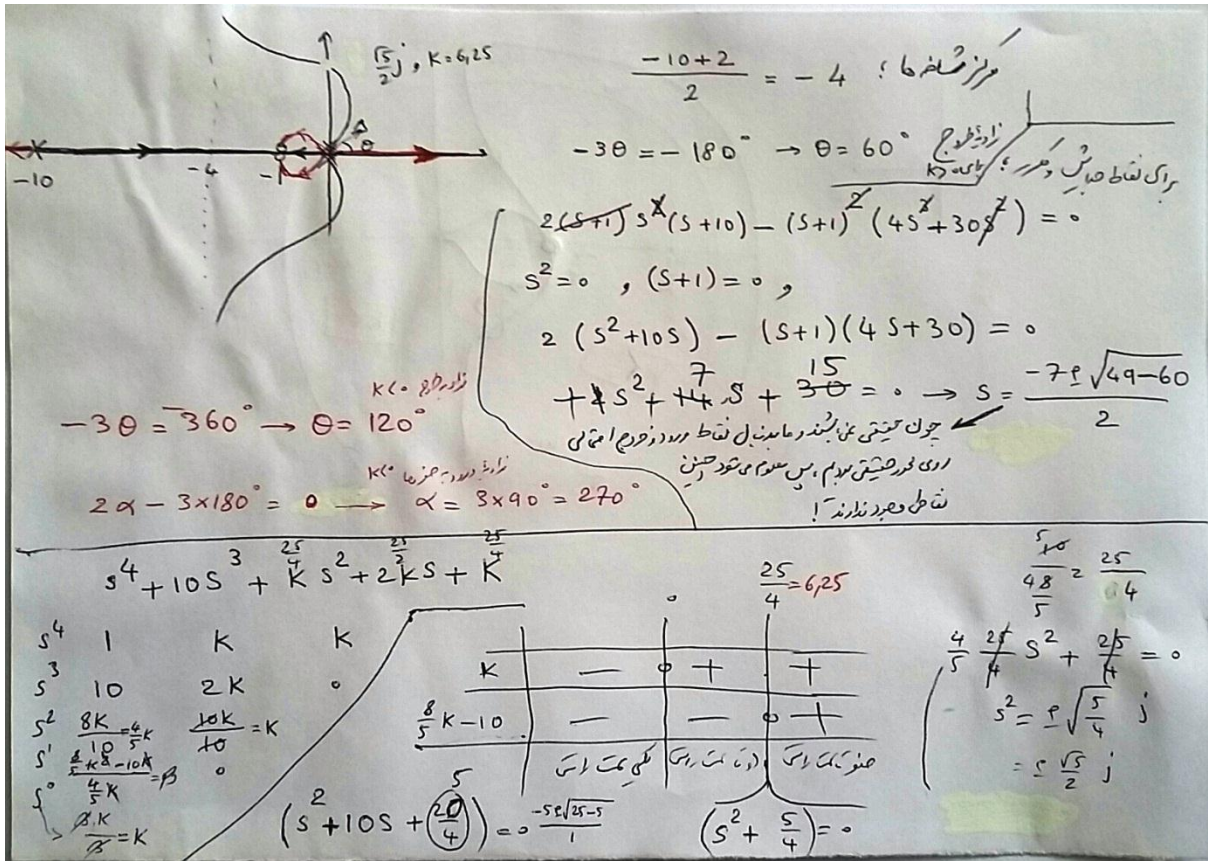 √5/2 j , K = 6,25
-10
-4
-1
θ
مرکز شاخه ها ؛ (-10+2)/2 = -4
-3θ = -180° → θ = 60° زاویه خروج
برای K>0
برای نقاط جدایش و تکرر ؛
2(s+1) s²(s+10) - (s+1)² (4s³+30s²) = 0
s² = 0 , (s+1) = 0 ,
2 (s²+10s) - (s+1)(4s+30) = 0
+ s² + 7 s + 15 = 0 → s = (-7 ± √49-60)/2
چون حقیقی نمی باشند و ما بدنبال نقاط ورود و خروج احتمالی
روی محور حقیقی بودیم ، پس معلوم می شود چنین
نقاطی وجود ندارند !
زاویه خروج K<0
-3θ = -360° → θ = 120°
زاویه ورود به صفرها K<0
2α - 3×180° = 0 → α = 3×90° = 270°
s⁴ + 10s³ + K s² + 2ks + K
25/4 25/2 25/4
s⁴ 1 K K
s³ 10 2K 0
s² 8K/10 = 4/5 K 10K/10 = K
s¹ (8/5 K² - 10K)/(4/5 K) = β 0
s⁰ β.K/β = K
0 25/4 = 6,25
K - 0 + +
8/5 K - 10 - - 0 +
یکی سمت راست دو تا سمت راست صفر تا سمت راست
(s² + 10s + 5) = 0 (-5 ± √25-5)/1
(s² + 5/4) = 0
10/(8/5) = 25/4
4/5 25/4 s² + 25/4 = 0
s² = ± √5/4 j
= ± √5/2 j